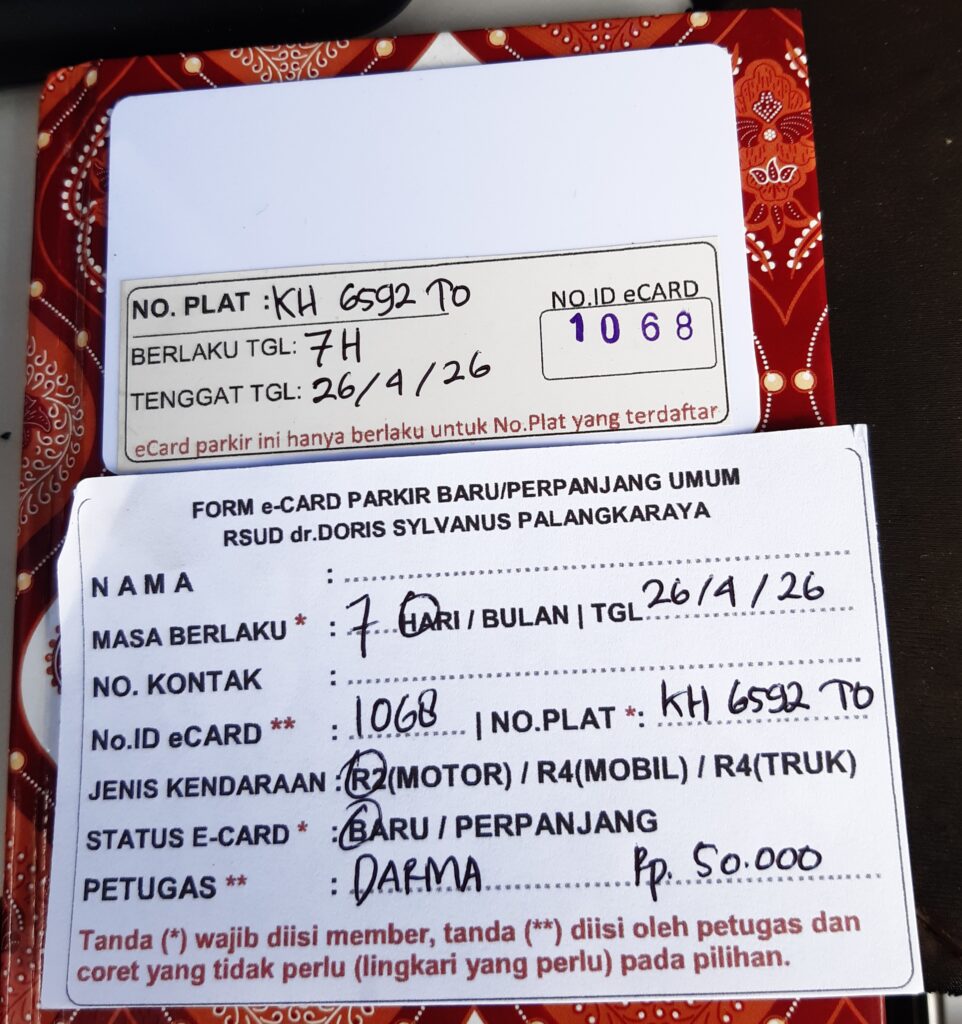 NO. PLAT : KH 6592 TO
NO.ID eCARD
1068
BERLAKU TGL: 7H
TENGGAT TGL: 26/4/26
eCard parkir ini hanya berlaku untuk No.Plat yang terdaftar
FORM e-CARD PARKIR BARU/PERPANJANG UMUM
RSUD dr.DORIS SYLVANUS PALANGKARAYA
NAMA :
MASA BERLAKU * : 7 HARI / BULAN | TGL 26/4/26
NO. KONTAK :
No.ID eCARD ** : 1068 | NO.PLAT *: KH 6592 TO
JENIS KENDARAAN : R2(MOTOR) / R4(MOBIL) / R4(TRUK)
STATUS E-CARD * : BARU / PERPANJANG
PETUGAS ** : DARMA Rp. 50.000
Tanda (*) wajib diisi member, tanda (**) diisi oleh petugas dan
coret yang tidak perlu (lingkari yang perlu) pada pilihan.